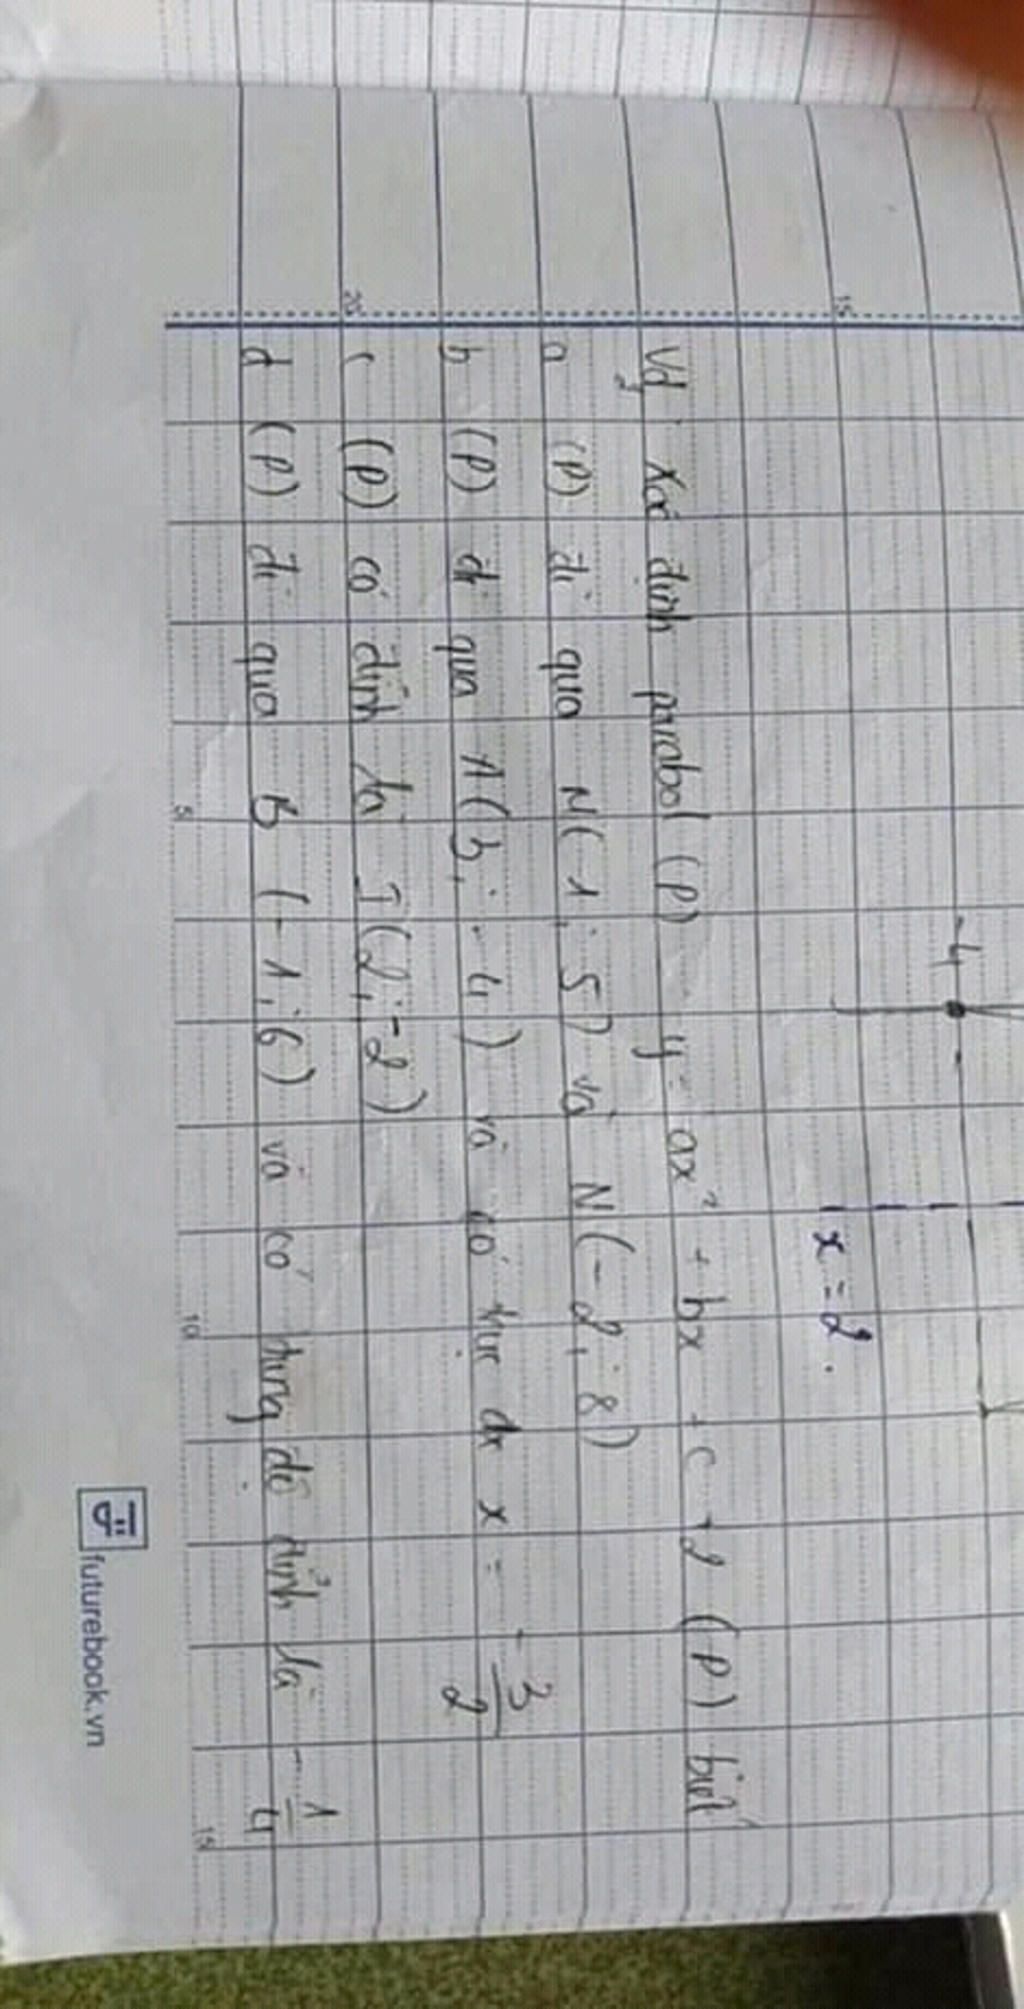 -4
x = 2.
Vd: Xác định parabol (P) y = ax² + bx + c + 2 (P) biết
a (P) đi qua N(1; 5) và N(-2; 8)
b (P) đi qua A(3; -4) và có trục dx x = -3/2
c (P) có đỉnh là I(2; -2)
d (P) đi qua B(-1; 6) và có tung độ đỉnh là -1/4
15
20
5
10
15
futurebook.vn